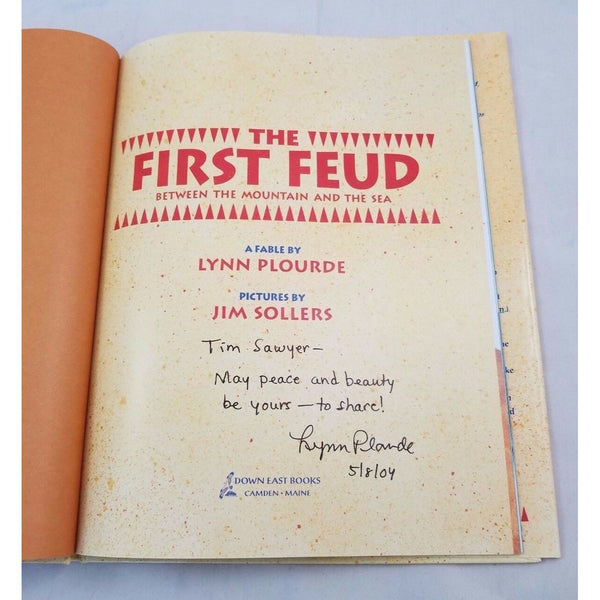 THE
FIRST FEUD
BETWEEN THE MOUNTAIN AND THE SEA
A FABLE BY
LYNN PLOURDE
PICTURES BY
JIM SOLLERS
Tim Sawyer—
May peace and beauty
be yours — to share!
Lynn Plourde
5/8/04
DOWN EAST BOOKS
CAMDEN • MAINE